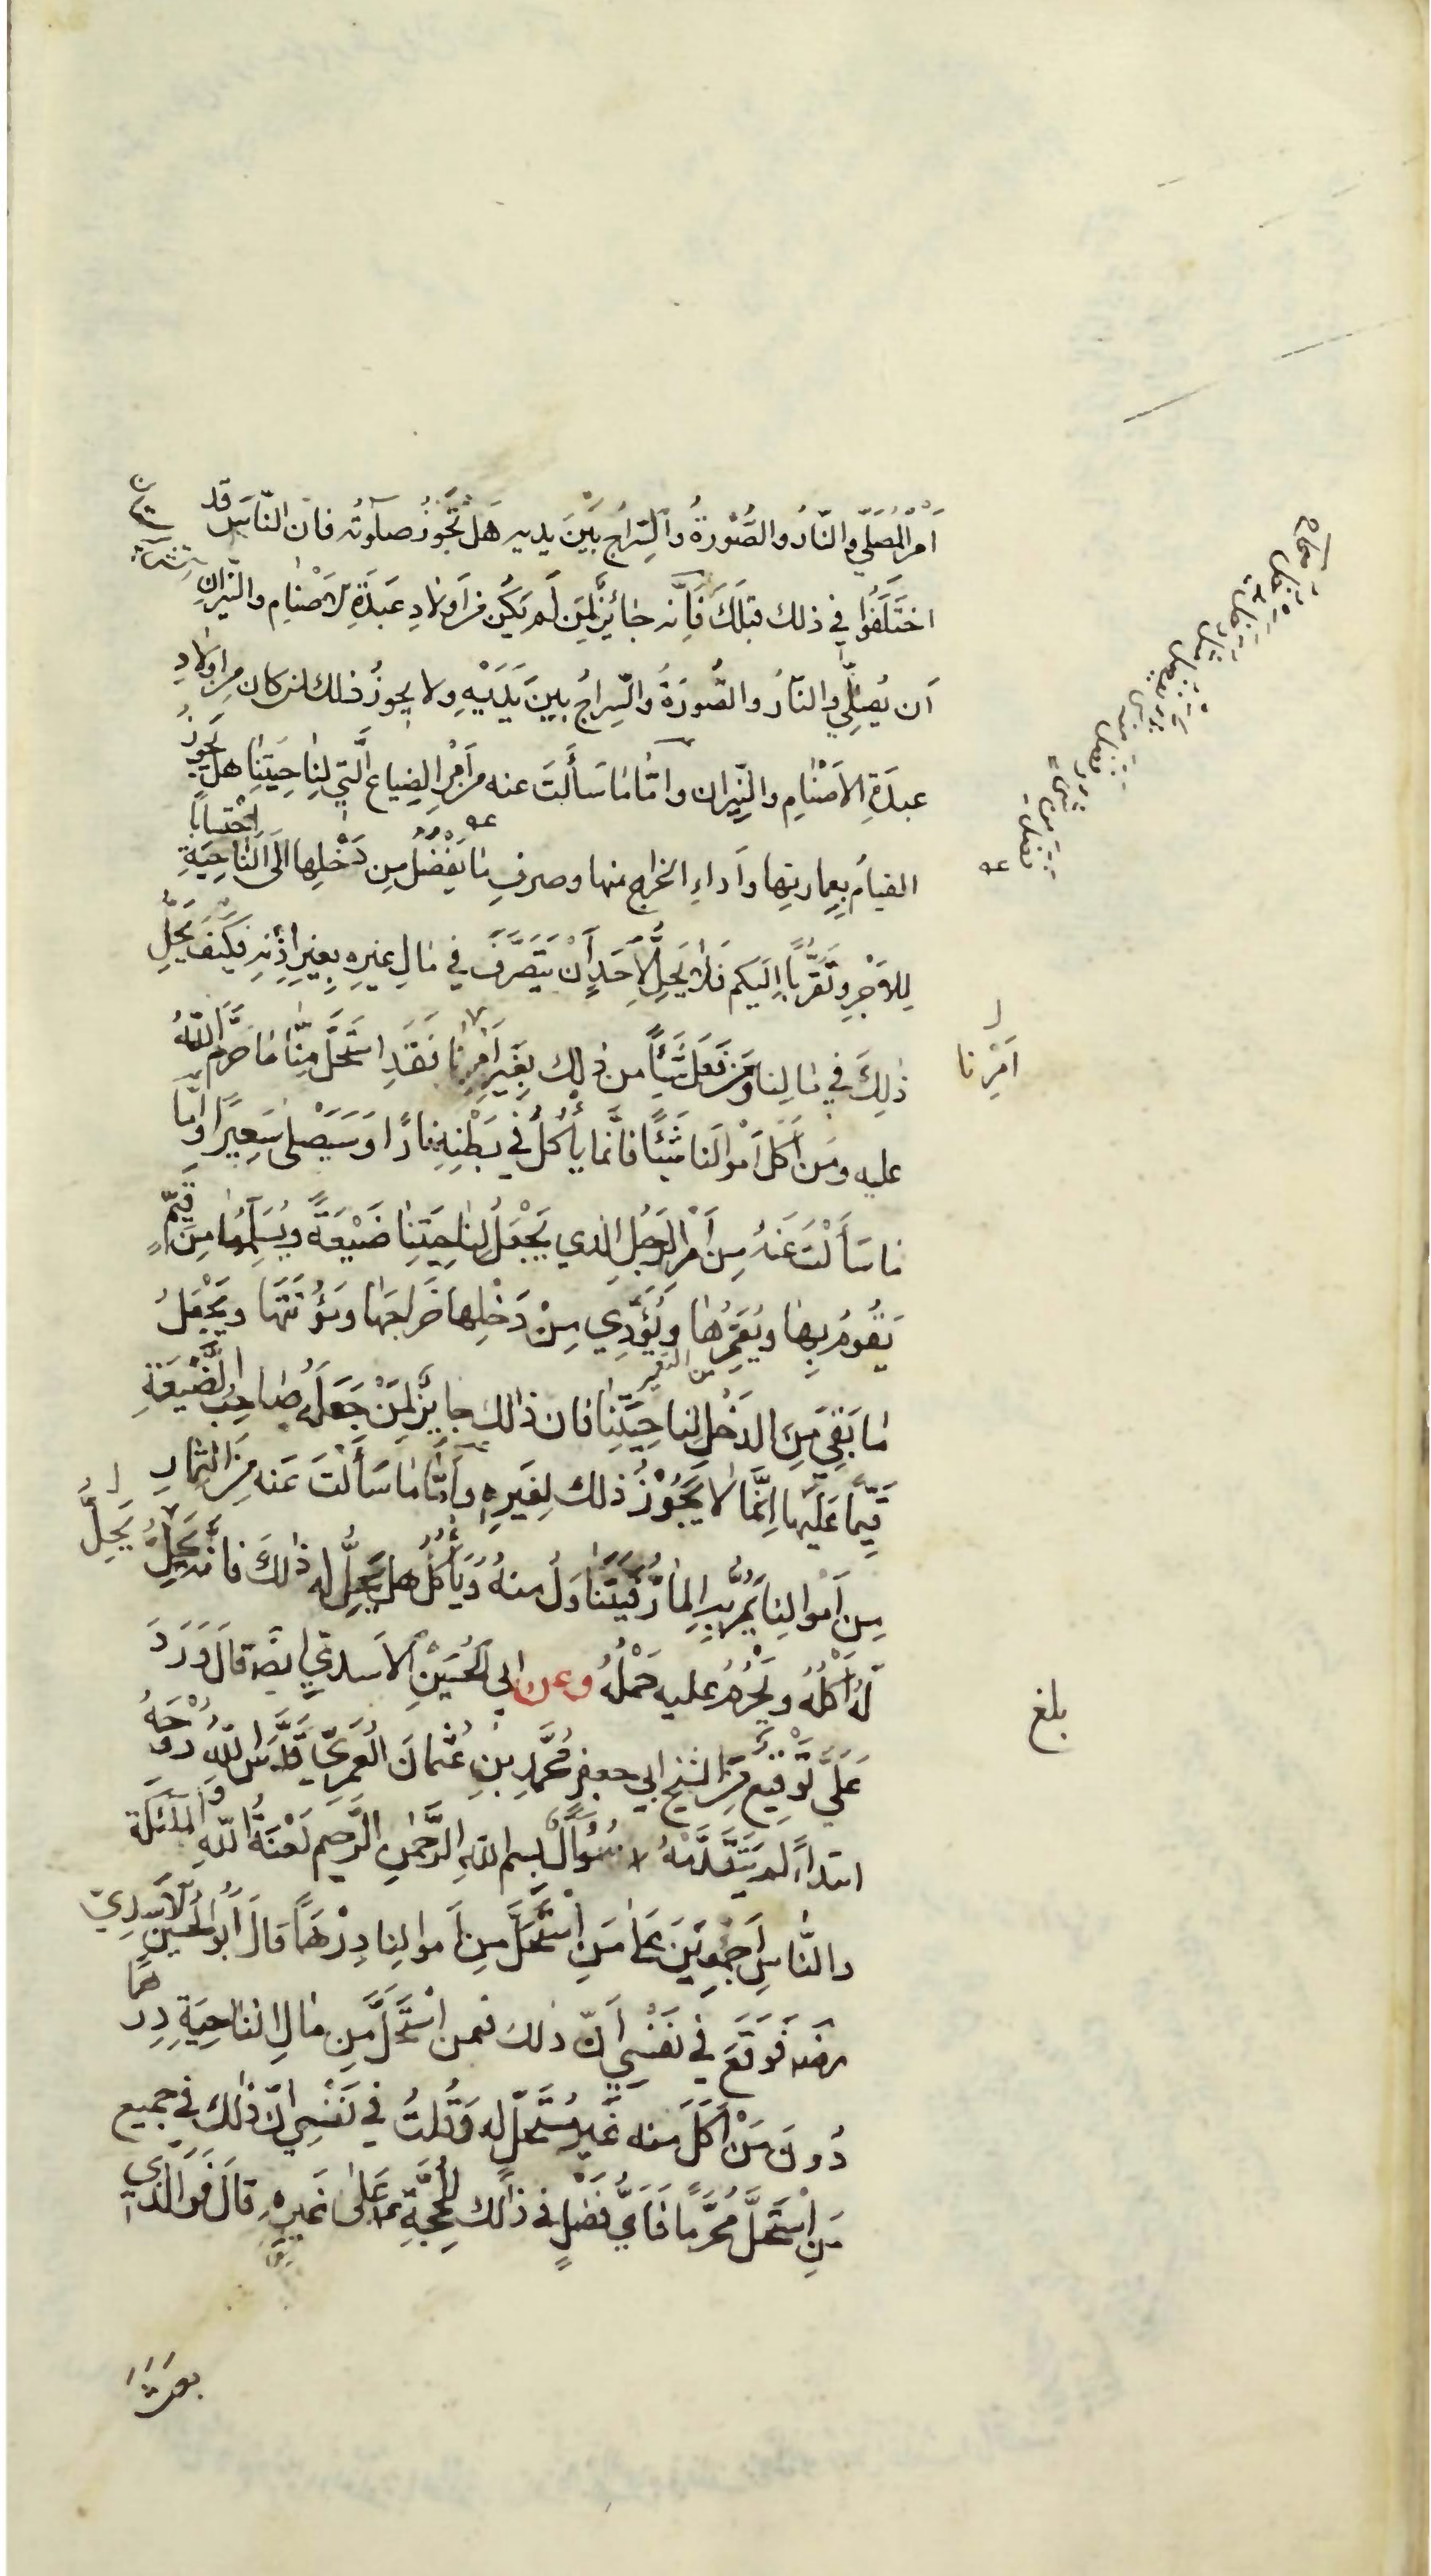 اَمْرِ الْمُصَلِّي والنّارُ والصُّوْرَةُ والسِّراجُ بَيْنَ يديه هَلْ تَجُوزُ صلوتُه فان النّاسَ قد
اختَلَفُوا في ذلك قبلَكَ فَاِنَّه جائِزٌ لِمَن لَم يَكُن مِن اَولادِ عَبَدَةِ الاَصْنامِ والنّيران
اَن يُصَلِّيَ والنّارُ والصُّورَةُ والسِّراجُ بينَ يَدَيْهِ ولا يجوزُ ذلك لمن كان مِن اولادِ
عبدَةِ الاَصْنامِ والنِّيران وامّا ما سَأَلتَ عنه من اَمْرِ الضِياع الَّتي لِناحِيَتِنا هل يَجُوزُ
القيامُ بِعِمارتِها واَداءِ الخراج منها وصرفِ ما يَفْضُلُ مِن دَخْلِها اِلَى النّاحِيَةِ احْتِسابًا
لِلاَجْرِ وتَقَرُّبًا اِلَيكم فَلا يَحِلُّ لِاَحَدٍ اَنْ يَتَصَرَّفَ في مالِ غيرِه بِغيرِ اِذْنِه فكيفَ يَحِلُّ
ذلِكَ في مالِنا ومَن فَعَلَ شَيئًا من ذلِك بِغَيرِ اَمْرِنا فَقَدِ استَحَلَّ مِنّا ما حَرَّمَ اللّهُ
اَمْرِنا
عليه ومَن اَكَلَ اَمْوالَنا شَيْئًا فانَّما يأكُلُ في بَطْنِهِ نارًا وسَيَصْلى سَعِيرًا واَمّا
ما سَأَلْتَ عَنهُ مِن اَمْرِ الرَجُلِ الذي يَجْعَلُ لِناحِيَتِنا ضَيْعَةً ويُسَلِّمُها مِن قَيِّمٍ
يَقُومُ بِها ويُعَمِّرُها ويُؤَدِّي مِنْ دَخْلِها خَراجَها ومَؤُنَتَها ويَجْعَلُ
ما بَقِيَ مِنَ الدَخْلِ لِناحِيَتِنا فان ذلك جايِزٌ لِمَنْ جَعَلَهُ صاحِبُ الضَّيْعَةِ
قَيِّمًا عَلَيها اِنَّما لا يَجُوْزُ ذلك لِغَيرِه واَمّا ما سَأَلْتَ عَنه مِنَ الثِمارِ
مِن اَمْوالِنا يَمُرُّ بِهِ المارُّ فَيَتَناوَلُ منهُ ويَأكُلُ هل يَحِلُّ له ذلكَ فانه يَحِلُّ
يَحِلُّ
لَهُ اَكْلُهُ ويَحْرُمُ عليه حَمْلُهُ وعن ابي الحُسَيْنِ الاَسَدِيِّ ايضًا قالَ وَرَدَ
بلغ
عَلَيَّ تَوْقِيعٌ مِنَ الشيخ ابي جعفرٍ مُحَمَّدِ بْنِ عُثمانَ العَمْرِيِّ قَدَّسَ اللّهُ رُوْحَهُ
ابتداءً لم يَتَقَدَّمْهُ سُؤَالٌ بسم اللهِ الرَّحْمنِ الرَّحِيمِ لَعْنَةُ اللّهِ والمَلئِكَةِ
والنّاسِ اَجْمَعِينَ على مَنِ اسْتَحَلَّ مِن اَموالِنا دِرْهَمًا قالَ اَبُو الحُسَينِ الاَسَدِيّ
رضه فَوَقَعَ في نَفْسِي اَنّ ذلك فيمن اسْتَحَلَّ مِن مالِ الناحِيَةِ دِرهمًا
دُونَ مَنْ اَكَلَ منه غَيرَ مُسْتَحِلٍّ له وقُلتُ في نَفْسِي انّ ذلك في جميع
مَنِ اسْتَحَلَّ مُحَرَّمًا فَاَيُّ فَضْلٍ في ذلك لِلحُجَّةِ ع على غَيرِهِ قالَ فَوَالَّذِي
بعث